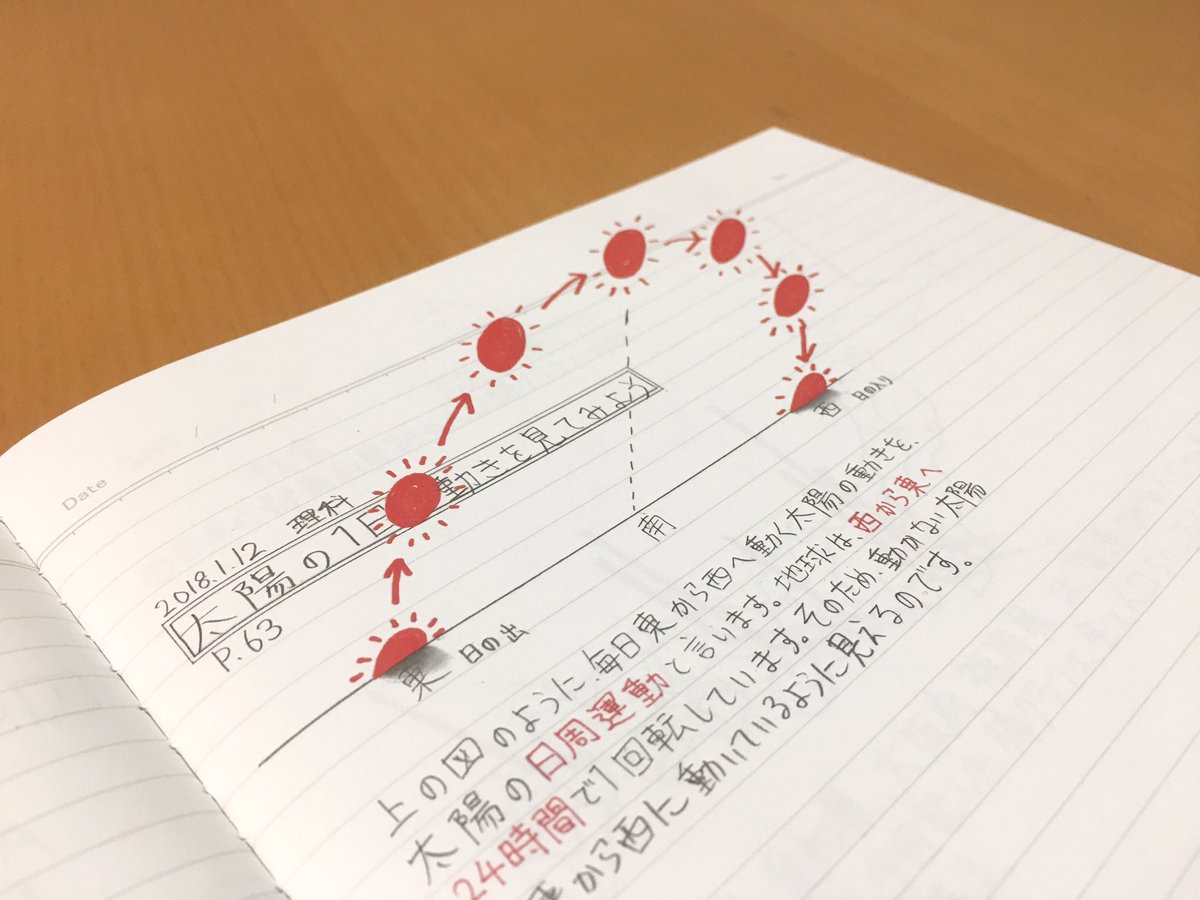 Date
2018.1.12 理科
太陽の1日 動きを見てみよう
P.63
東 日の出
南
西 日の入り
上の図のように、毎日東から西へ動く太陽の動きを、
太陽の日周運動と言います。地球は、西から東へ
24時間で1回転しています。そのため、動かない太陽
から西に動いているように見えるのです。